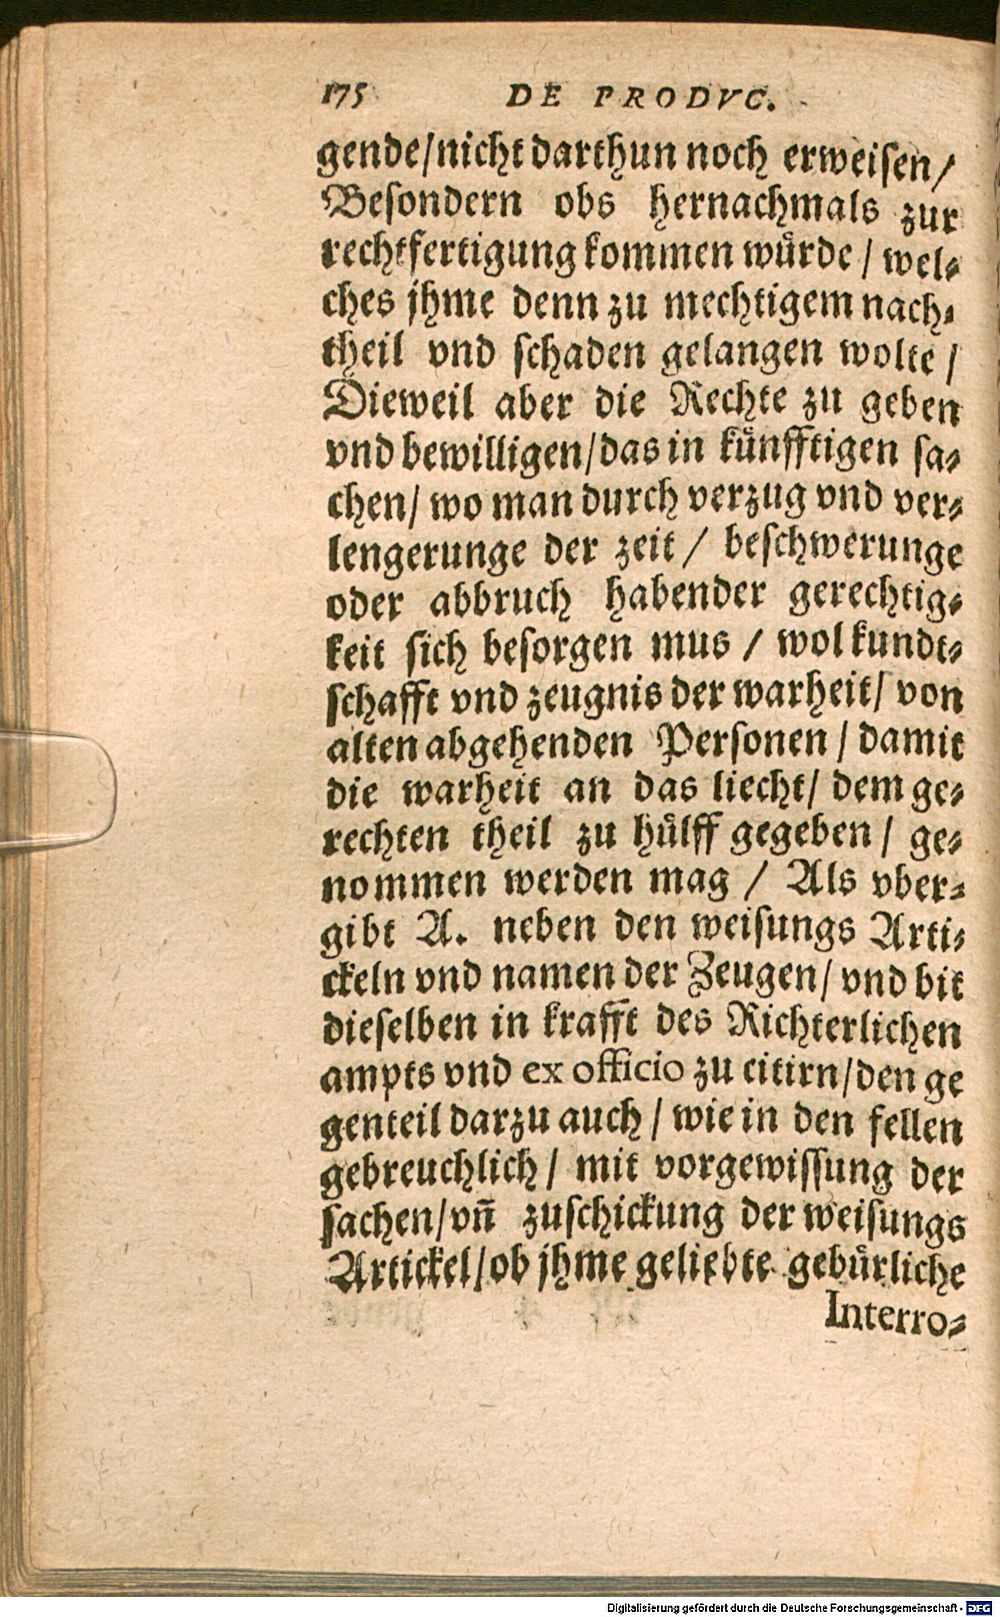 175 DE PRODVC.
gende/nicht darthun noch erweisen/
Besondern obs hernachmals zur
rechtfertigung kommen würde/ wel-
ches jhme denn zu mechtigem nach-
theil vnd schaden gelangen wolte/
Dieweil aber die Rechte zu geben
vnd bewilligen/das in künfftigen sa-
chen/ wo man durch verzug vnd ver-
lengerunge der zeit/ beschwerunge
oder abbruch habender gerechtig-
keit sich besorgen mus/ wol kundt-
schafft vnd zeugnis der warheit/ von
alten abgehenden Personen/ damit
die warheit an das liecht/ dem ge-
rechten theil zu hülff gegeben/ ge-
nommen werden mag/ Als vber-
gibt A. neben den weisungs Arti-
ckeln vnd namen der Zeugen/ vnd bit
dieselben in krafft des Richterlichen
ampts vnd ex officio zu citirn/den ge
genteil darzu auch/ wie in den fellen
gebreuchlich/ mit vorgewissung der
sachen/vñ zuschickung der weisungs
Artickel/ob jhme geliebte gebürliche
Interro-
Digitalisierung gefördert durch die Deutsche Forschungsgemeinschaft - DFG